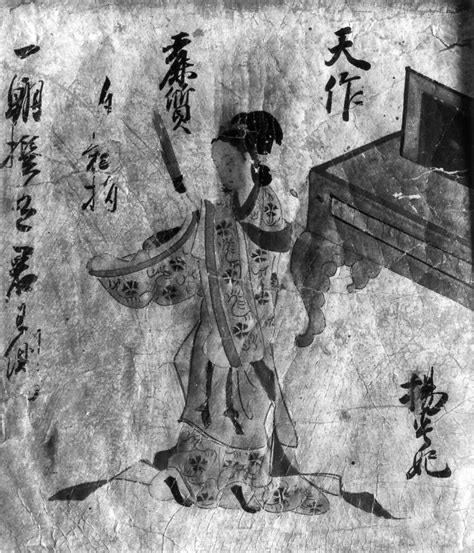 天作
麗質
自
一朝撰君王側
楊貴妃